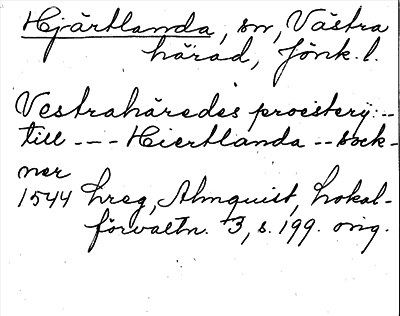 Hjärtlanda, sn, Västra
härad, Jönk. l.
Vestrahäredes proestery: --
till --- Hiertlanda -- sock-
ner
1544 hreg, Almquist, Lokal-
förvaltn. 3, s. 199. orig.